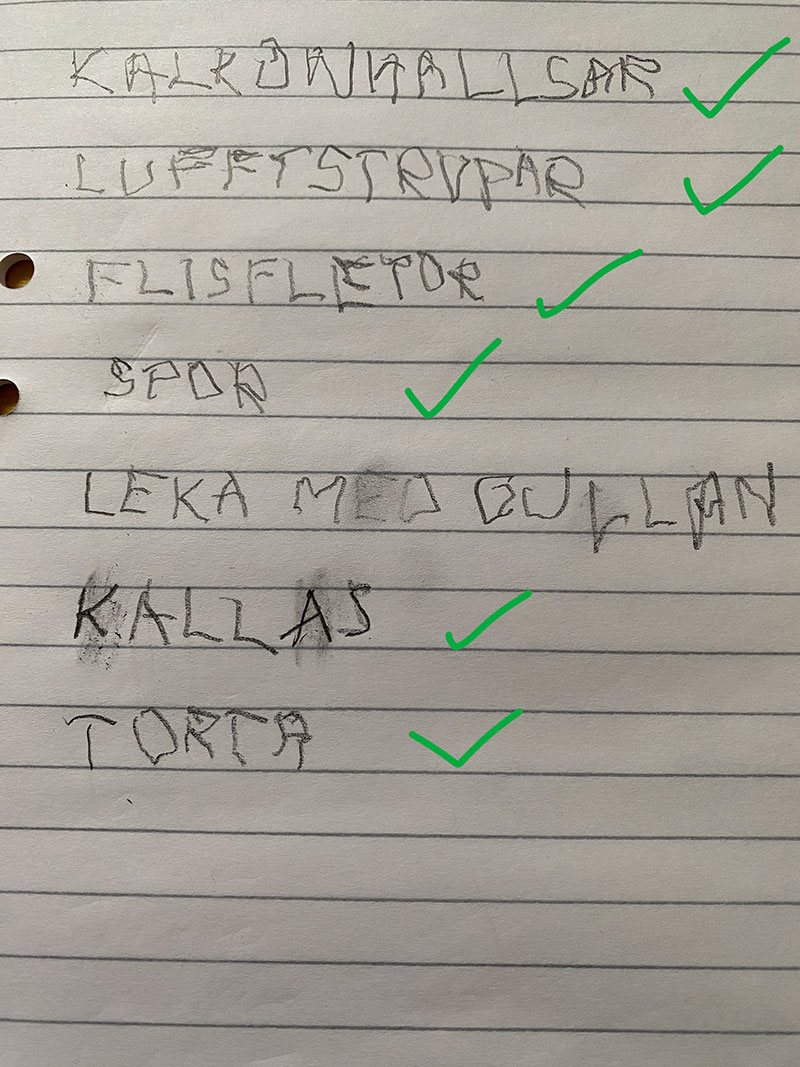 KALKONHALLSAR
LUFFTSTRUPAR
FLISFLETOR
SPOR
LEKA MED GULLAN
KALLAS
TORTA